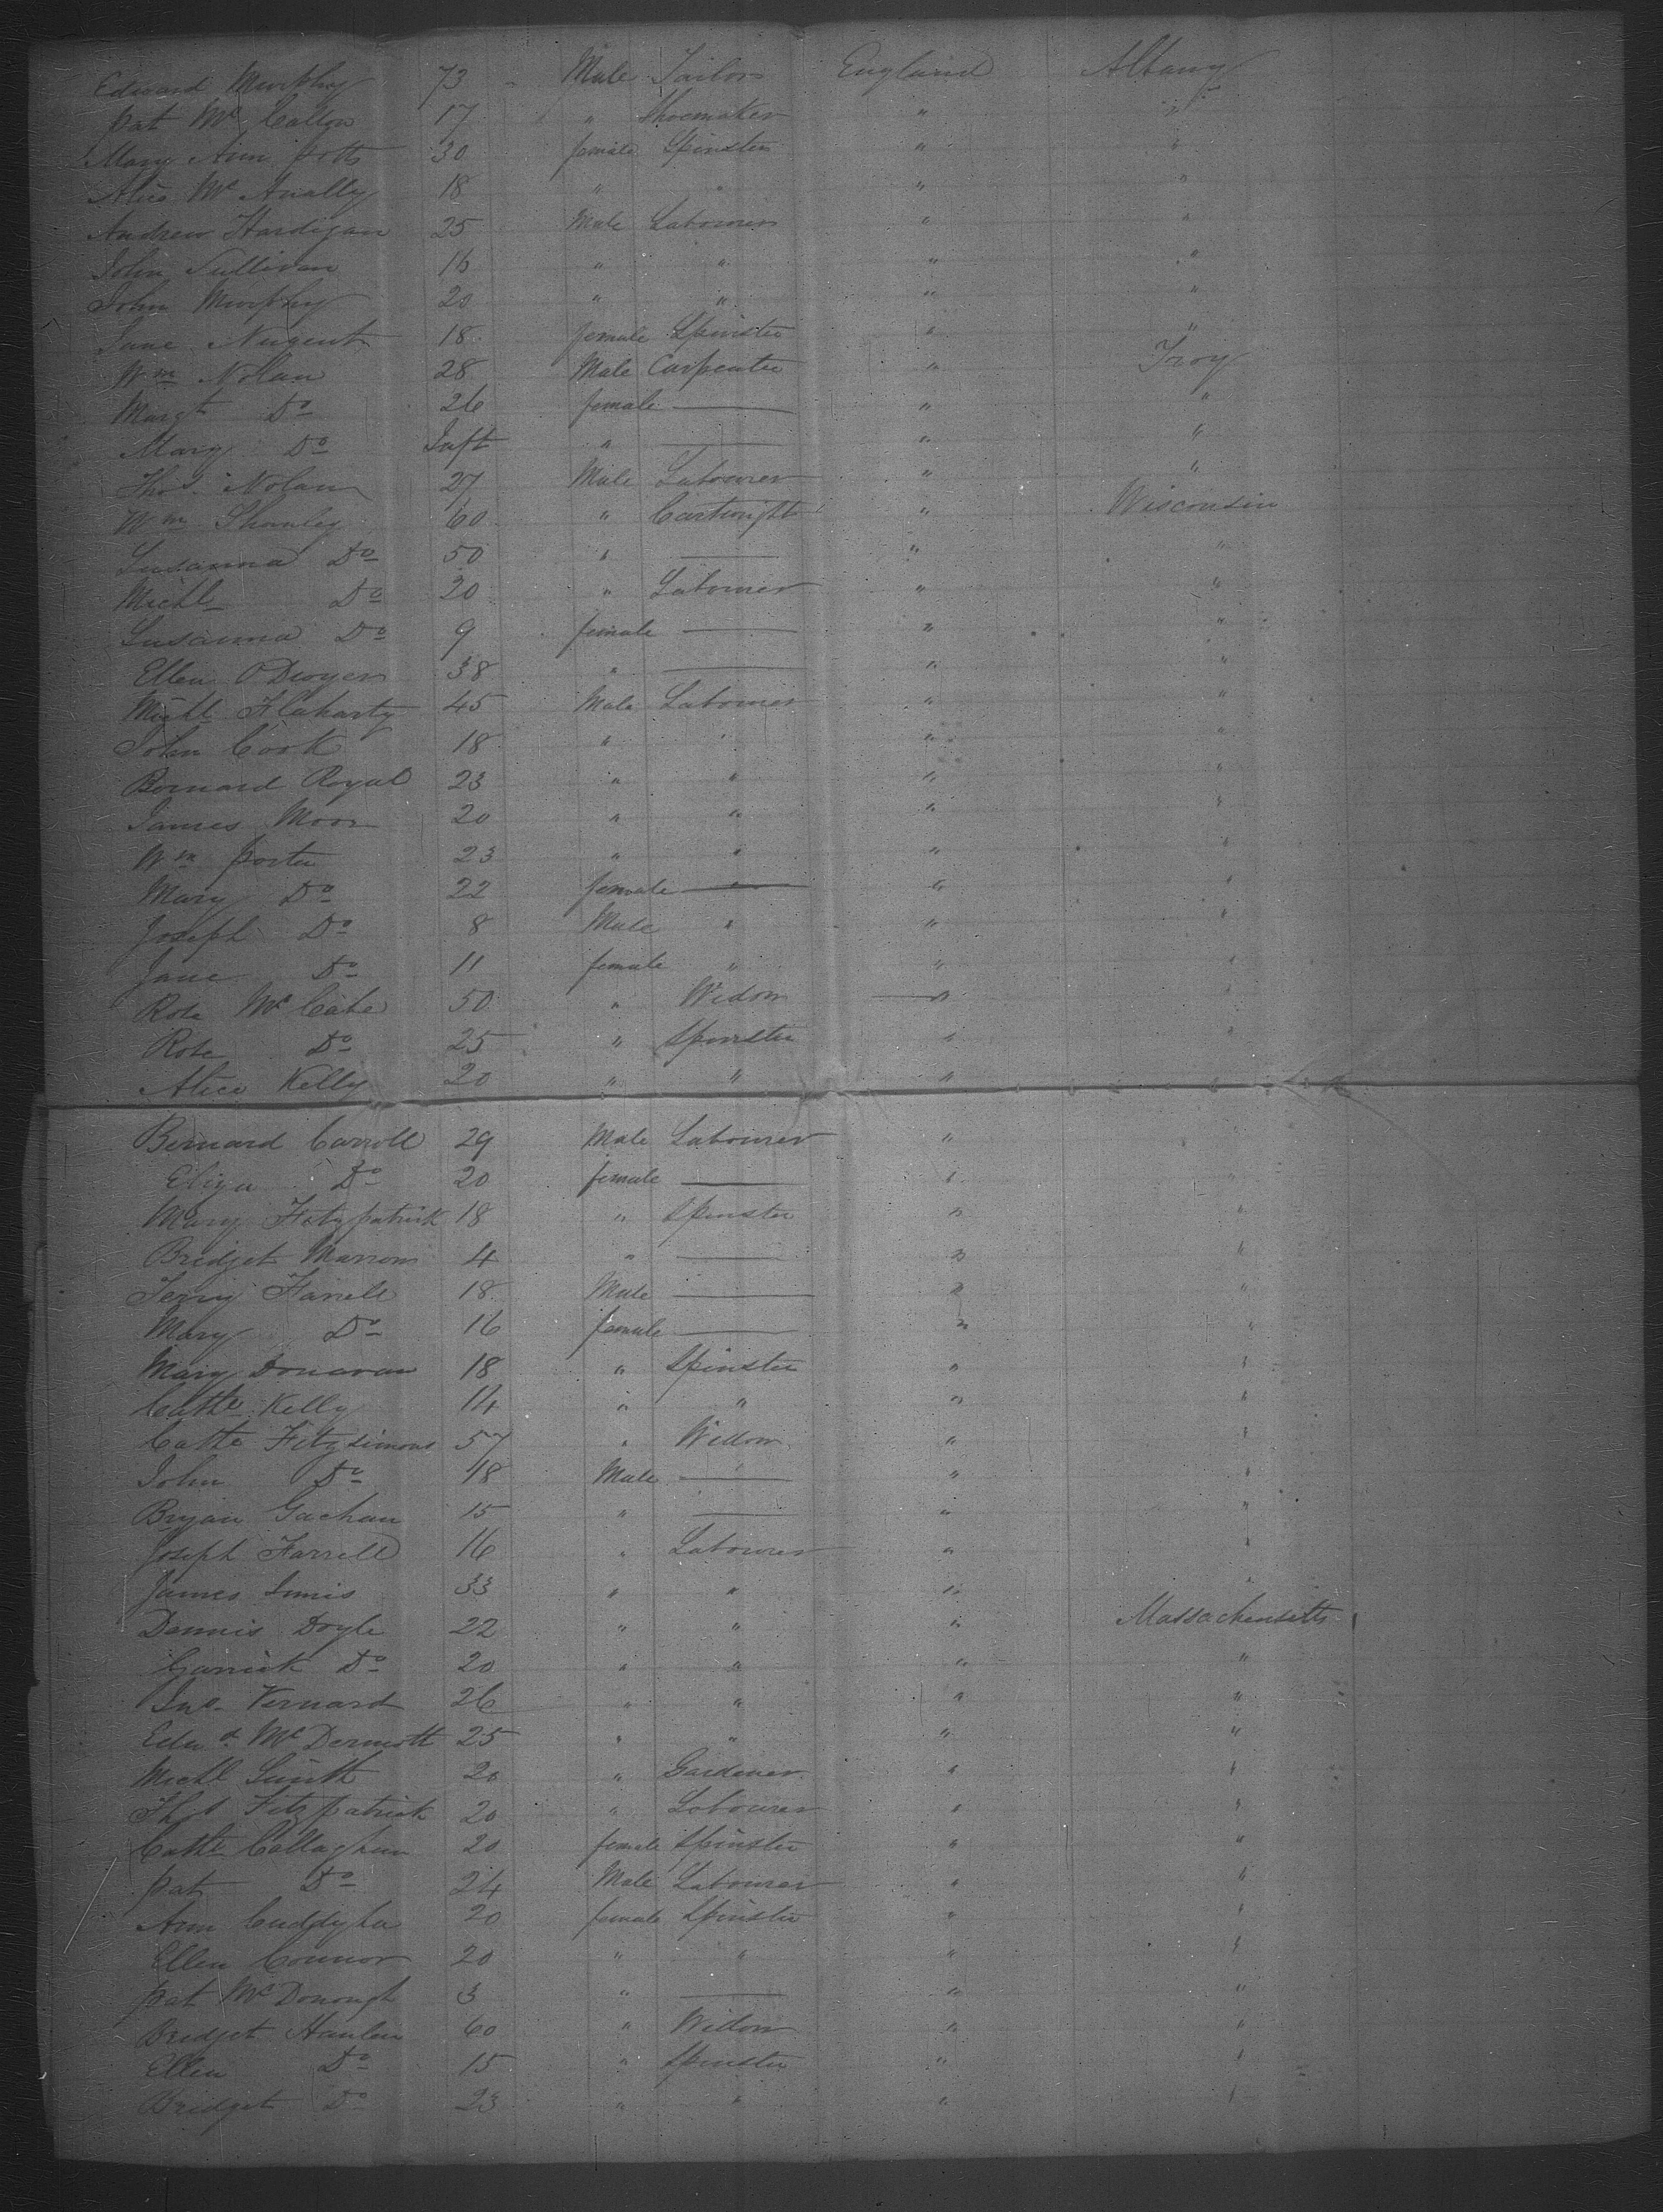 Edward Murphy 73 Male Tailor England Albany
Pat Mc Callon 17 " Shoemaker " "
Mary Ann Potts 30 female Spinster " "
Alice Mc Anally 18 " " " "
Andrew Hardigan 25 Male Labourer " "
John Sullivan 16 " " " "
John Murphy 20 " " " "
Jane Nugent 18 female Spinster " "
Wm Nolan 28 Male Carpenter " Troy
Margt Do 26 female — " "
Mary Do Inft " — " "
Thos Nolan 27 Male Labourer " "
Wm Shanley 60 " Cartwright " Wisconsin
Susanna Do 50 " — " "
Michl Do 20 " Labourer " "
Susanna Do 9 female — " "
Ellen O Dwyer 38 " — " "
Michl Flaharty 45 Male Labourer " "
John Cook 18 " " " "
Bernard Royal 23 " " " "
James Moor 20 " " " "
Wm Porter 23 " " " "
Mary Do 22 female — " "
Joseph Do 8 Male " " "
Jane Do 11 female " " "
Rose Mc Cabe 50 " Widow " "
Rose Do 25 " Spinster " "
Alice Kelly 20 " " "
Bernard Carroll 29 Male Labourer " "
Eliza Do 20 female — " "
Mary Fitzpatrick 18 " Spinster " "
Bridget Marron 4 " — " "
Terry Farrell 18 Male — " "
Mary Do 16 female — " "
Mary Donavan 18 " Spinster " "
Cathe Kelly 14 " " " "
Cathe Fitzsimons 57 " Widow " "
John Do 18 Male — " "
Bryan Gachan 15 " — " "
Joseph Farrell 16 " Labourer " "
James Innis 33 " " " "
Dennis Doyle 22 " " " Massachusetts
Garrick Do 20 " " " "
Jno. Vernard 26 " " " "
Edwd Mc Dermott 25 " " " "
Michl Smith 20 " Gardener " "
Thos Fitzpatrick 20 " Labourer " "
Cathe Callaghan 20 female Spinster " "
Pat Do 24 Male Labourer " "
Ann Cuddyha 20 female Spinster " "
Ellen Connor 20 " " " "
Pat Mc Donough 3 " — " "
Bridget Hanlen 60 " Widow " "
Ellen Do 15 " Spinster " "
Bridget Do 23 " " " "